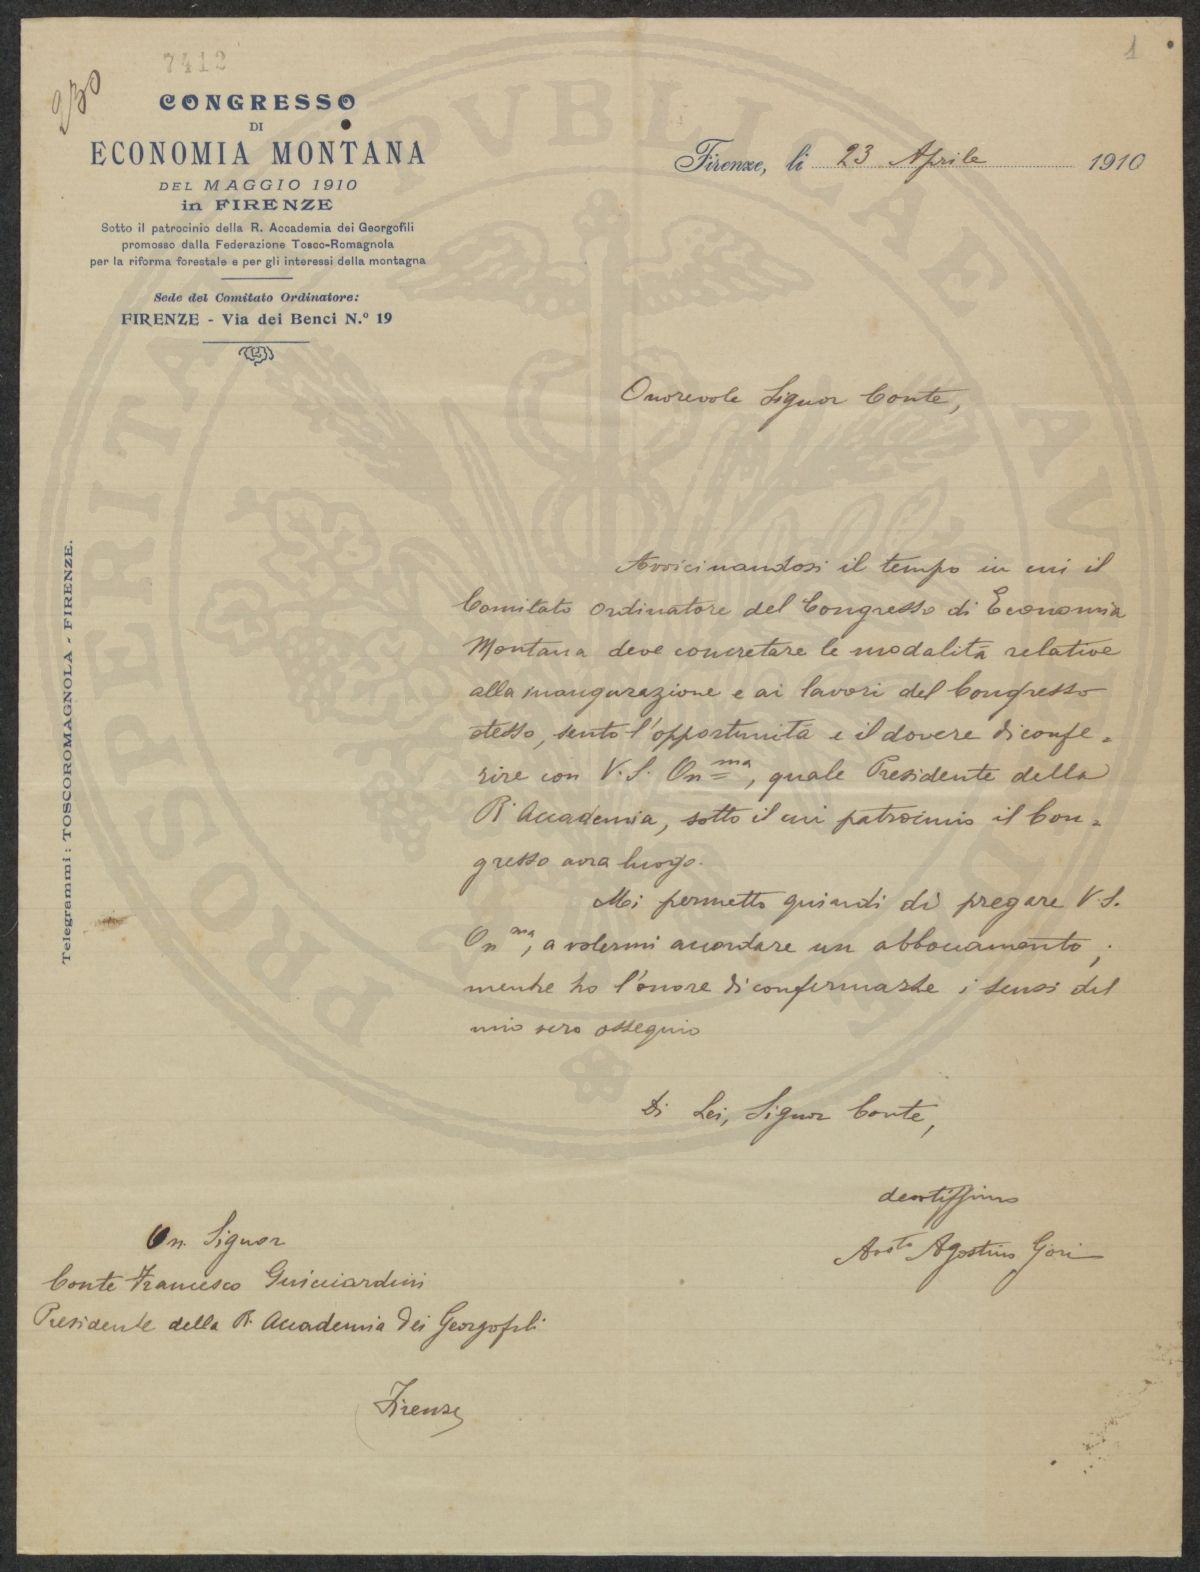 7412
1
230
CONGRESSO
DI
ECONOMIA MONTANA
DEL MAGGIO 1910
in FIRENZE
Sotto il patrocinio della R. Accademia dei Georgofili
promosso dalla Federazione Tosco-Romagnola
per la riforma forestale e per gli interessi della montagna
Sede del Comitato Ordinatore:
FIRENZE - Via dei Benci N.º 19
Firenze, li 23 Aprile 1910
Telegrammi: TOSCOROMAGNOLA - FIRENZE.
Onorevole Signor Conte,
Avvicinandosi il tempo in cui il
Comitato Ordinatore del Congresso di Economia
Montana deve concretare le modalità relative
alla inaugurazione e ai lavori del Congresso
stesso, sento l'opportunità e il dovere di confe=
rire con V. S. On.ma, quale Presidente della
R. Accademia, sotto il cui patrocinio il Con=
gresso avrà luogo.
Mi permetto quindi di pregare V. S.
On.ma, a volermi accordare un abboccamento;
mentre ho l'onore di confermarLe i sensi del
mio vero ossequio
Di Lei, Signor Conte,
devotissimo
Agostino Gori
On. Signor
Conte Francesco Guicciardini
Presidente della R. Accademia dei Georgofili
Firenze
PROSPERITATI PVBLICAE AVGENDAE